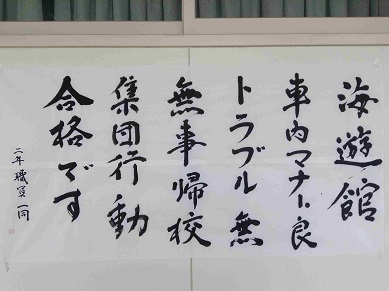 海遊館
車内マナー良
トラブル無
無事帰校
集団行動
合格です
二年職員一同